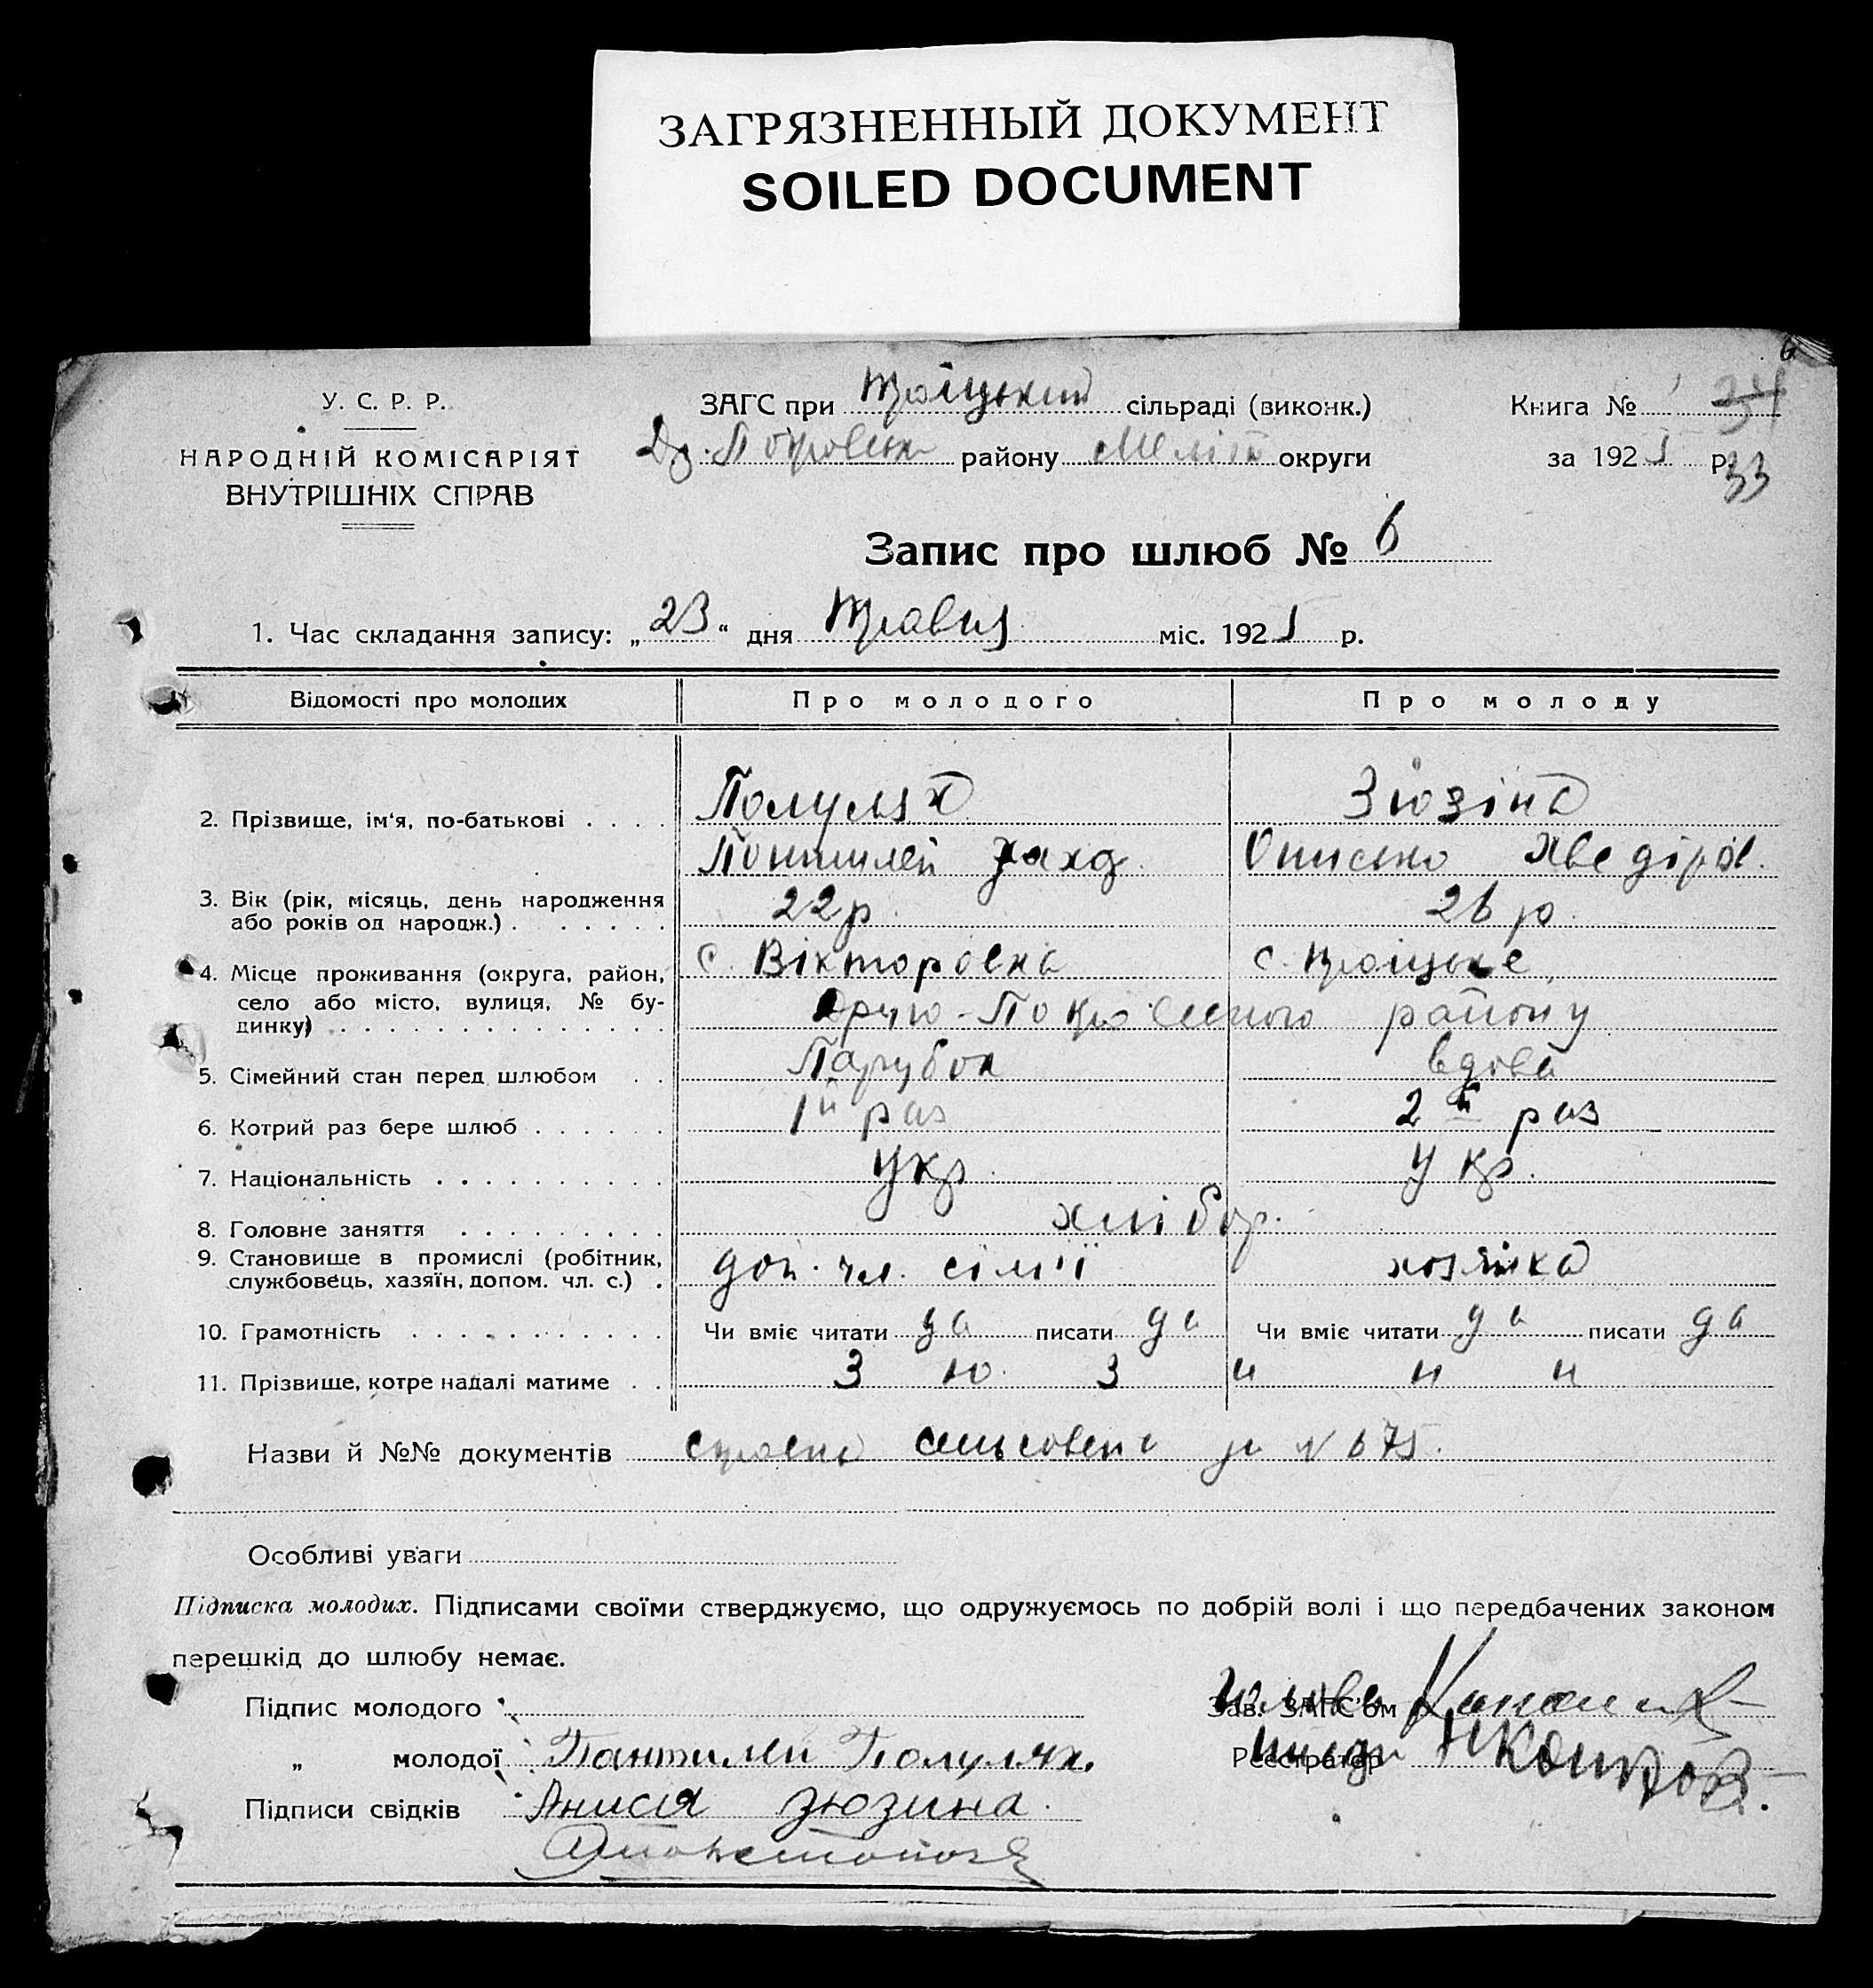 ЗАГРЯЗНЕННЫЙ ДОКУМЕНТ
SOILED DOCUMENT
6
У. С. Р. Р.
НАРОДНІЙ КОМІСАРІЯТ
ВНУТРІШНІХ СПРАВ
ЗАГС при Троіцький сільраді (виконк.)
Др. Покровськ району Меліт округи
Книга № 34
за 1925 р. 33
Запис про шлюб № 6
1. Час складання запису: „23“ дня Травня міс. 1925 р.
Відомості про молодих Про молодого Про молоду
2. Прізвище, ім'я, по-батькові . . . . Полулях Зюзіна
Хведіров.
3. Вік (рік, місяць, день народження
або років од народж.) . . . . . . 22 р. 26 р.
4. Місце проживання (округа, район, с. Вікторовка с. Троіцьке,
село або місто, вулиця, № бу-
динку) . . . . . . . . . . . . . . району
5. Сімейний стан перед шлюбом . . Парубок вдова
6. Котрий раз бере шлюб . . . . . . 1й раз 2й раз
7. Національність . . . . . . . . . . Укр. Укр.
8. Головне заняття . . . . . . . . . хлібор.
9. Становище в промислі (робітник,
службовець, хазяїн, допом. чл. с.) . доп. чл. сім'ї хозяйка
10. Грамотність . . . . . . . . . . . Чи вміє читати да писати да Чи вміє читати да писати да
11. Прізвище, котре надалі матиме . . З ю з и н и
Назви й №№ документів за № 675.
Особливі уваги
Підписка молодих. Підписами своїми стверджуємо, що одружуємось по добрій волі і що передбачених законом
перешкід до шлюбу немає.
Підпис молодого
Зав. ЗАГС'ом
„ молодої Пантилей Полулях.
Реєстратор
Підписи свідків Анисія Зюзина.